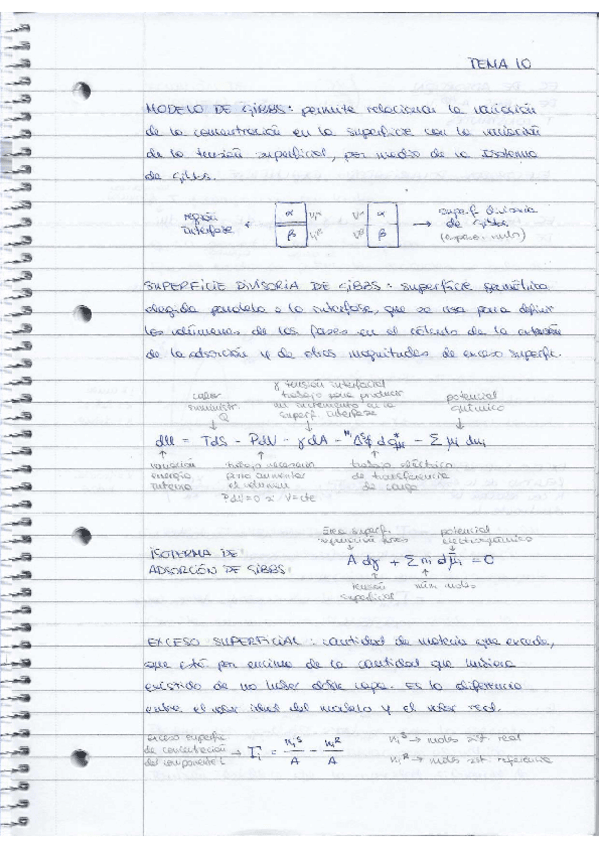 TEMA 10
MODELO DE GIBBS: permite relacionar la variación
de la concentración en la superficie con la variación
de la tensión superficial, por medio de la isoterma
de Gibbs.
región interfase
α β
α β
→ superf. divisoria de Gibbs
SUPERFICIE DIVISORIA DE GIBBS: superficie geométrica
elegida paralela a la interfase, que se usa para definir
los volúmenes de las fases en el cálculo de la extensión
de la adsorción y de otras magnitudes de exceso superfic.
calor suministr. Q
γ tensión interfacial
trabajo para producir
un incremento en la
superf. interfase
potencial químico
dU = TdS - PdV - γdA - - Σ μi dni
variación energía interna
trabajo necesario
para aumentar
el volumen
PdV=0 si V=cte
trabajo eléctrico
de transferencia
de carga
área superf.
separación fases
potencial electroquímico
ISOTERMA DE
ADSORCIÓN DE GIBBS:
A dγ + Σ ni dμ̄i = 0
tensión superficial
núm. moles
EXCESO SUPERFICIAL: cantidad de materia que excede,
que está por encima de la cantidad que hubiera
existido de no haber doble capa. Es la diferencia
entre el valor ideal del modelo y el valor real.
exceso superfic.
de concentración
del componente i
→ Γi = niS/A - niR/A
niS → moles sist. real
niR → moles sist. referencia